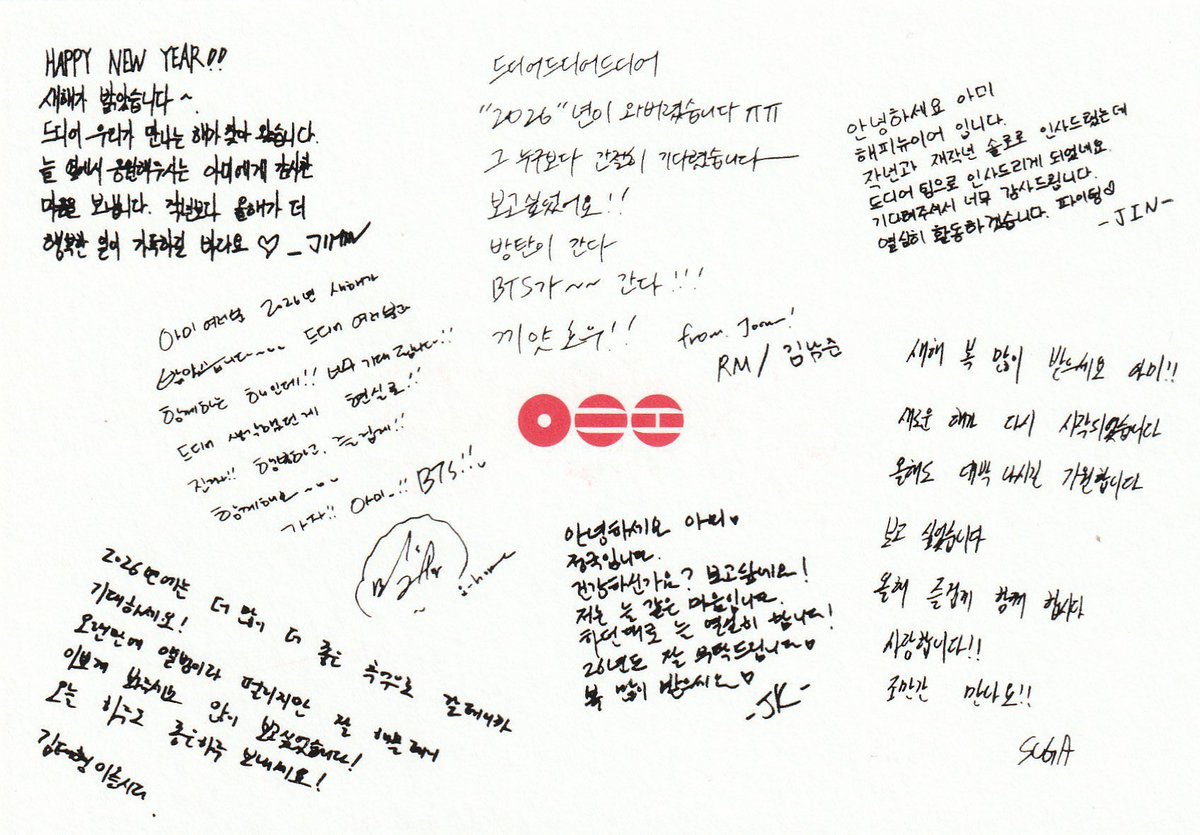 HAPPY NEW YEAR!!
새해가 밝았습니다~.
드디어 우리가 만나는 해가 찾아 왔습니다.
늘 옆에서 응원해주시는 아미에게 감사한
마음을 보냅니다. 작년보다 올해가 더
행복한 일이 가득하길 바라요 ♡ _ JIMIN
드디어드디어드디어
"2026"년이 와버렸습니다 ㅠㅠ
그 누구보다 간절히 기다렸습니다
보고싶었어요!!
방탄이 간다
BTS가~~ 간다!!!
끼얏호우!!
from. Joon!
RM / 김남준
안녕하세요 아미
해피뉴이어 입니다.
작년과 재작년 솔로로 인사드렸는데
드디어 팀으로 인사드리게 되었네요.
기다려주셔서 너무 감사드립니다.
열심히 활동하겠습니다. 파이팅♡
-JIN-
아미 여러분 2026년 새해가
밝았습니다~~~ 드디어 여러분과
함께하는 해인데!! 너무 기대됩니다!!
드디어 생각했던게 현실로!!
진짜!! 행복하고, 즐겁게!!
함께해요~~~
가자!! 아미..!! BTS!!
j-hope
새해 복 많이 받으세요 아미!!
새로운 해가 다시 시작되었습니다
올해도 대박 나시길 기원합니다
보고 싶었습니다
올해 즐겁게 함께 합시다
사랑합니다!!
조만간 만나요!!
SUGA
2026년에는 더 많이 더 좋은 추억으로 갈테니까
기대하세요!
오랜만에 앨범이라 떨리지만 잘 해볼테니
이쁘게 봐주시요 많이 보고싶었습니다!
오늘 하루도 좋은하루 보내세요!
김태형이올시다.
안녕하세요 아미♥
정국입니다.
건강하신가요? 보고싶네요!
저는 늘 같은 마음입니다.
하던대로 늘 열심히 합니다!
26년도 잘 부탁드립니다♥
복 많이 받으세요♥
-JK-